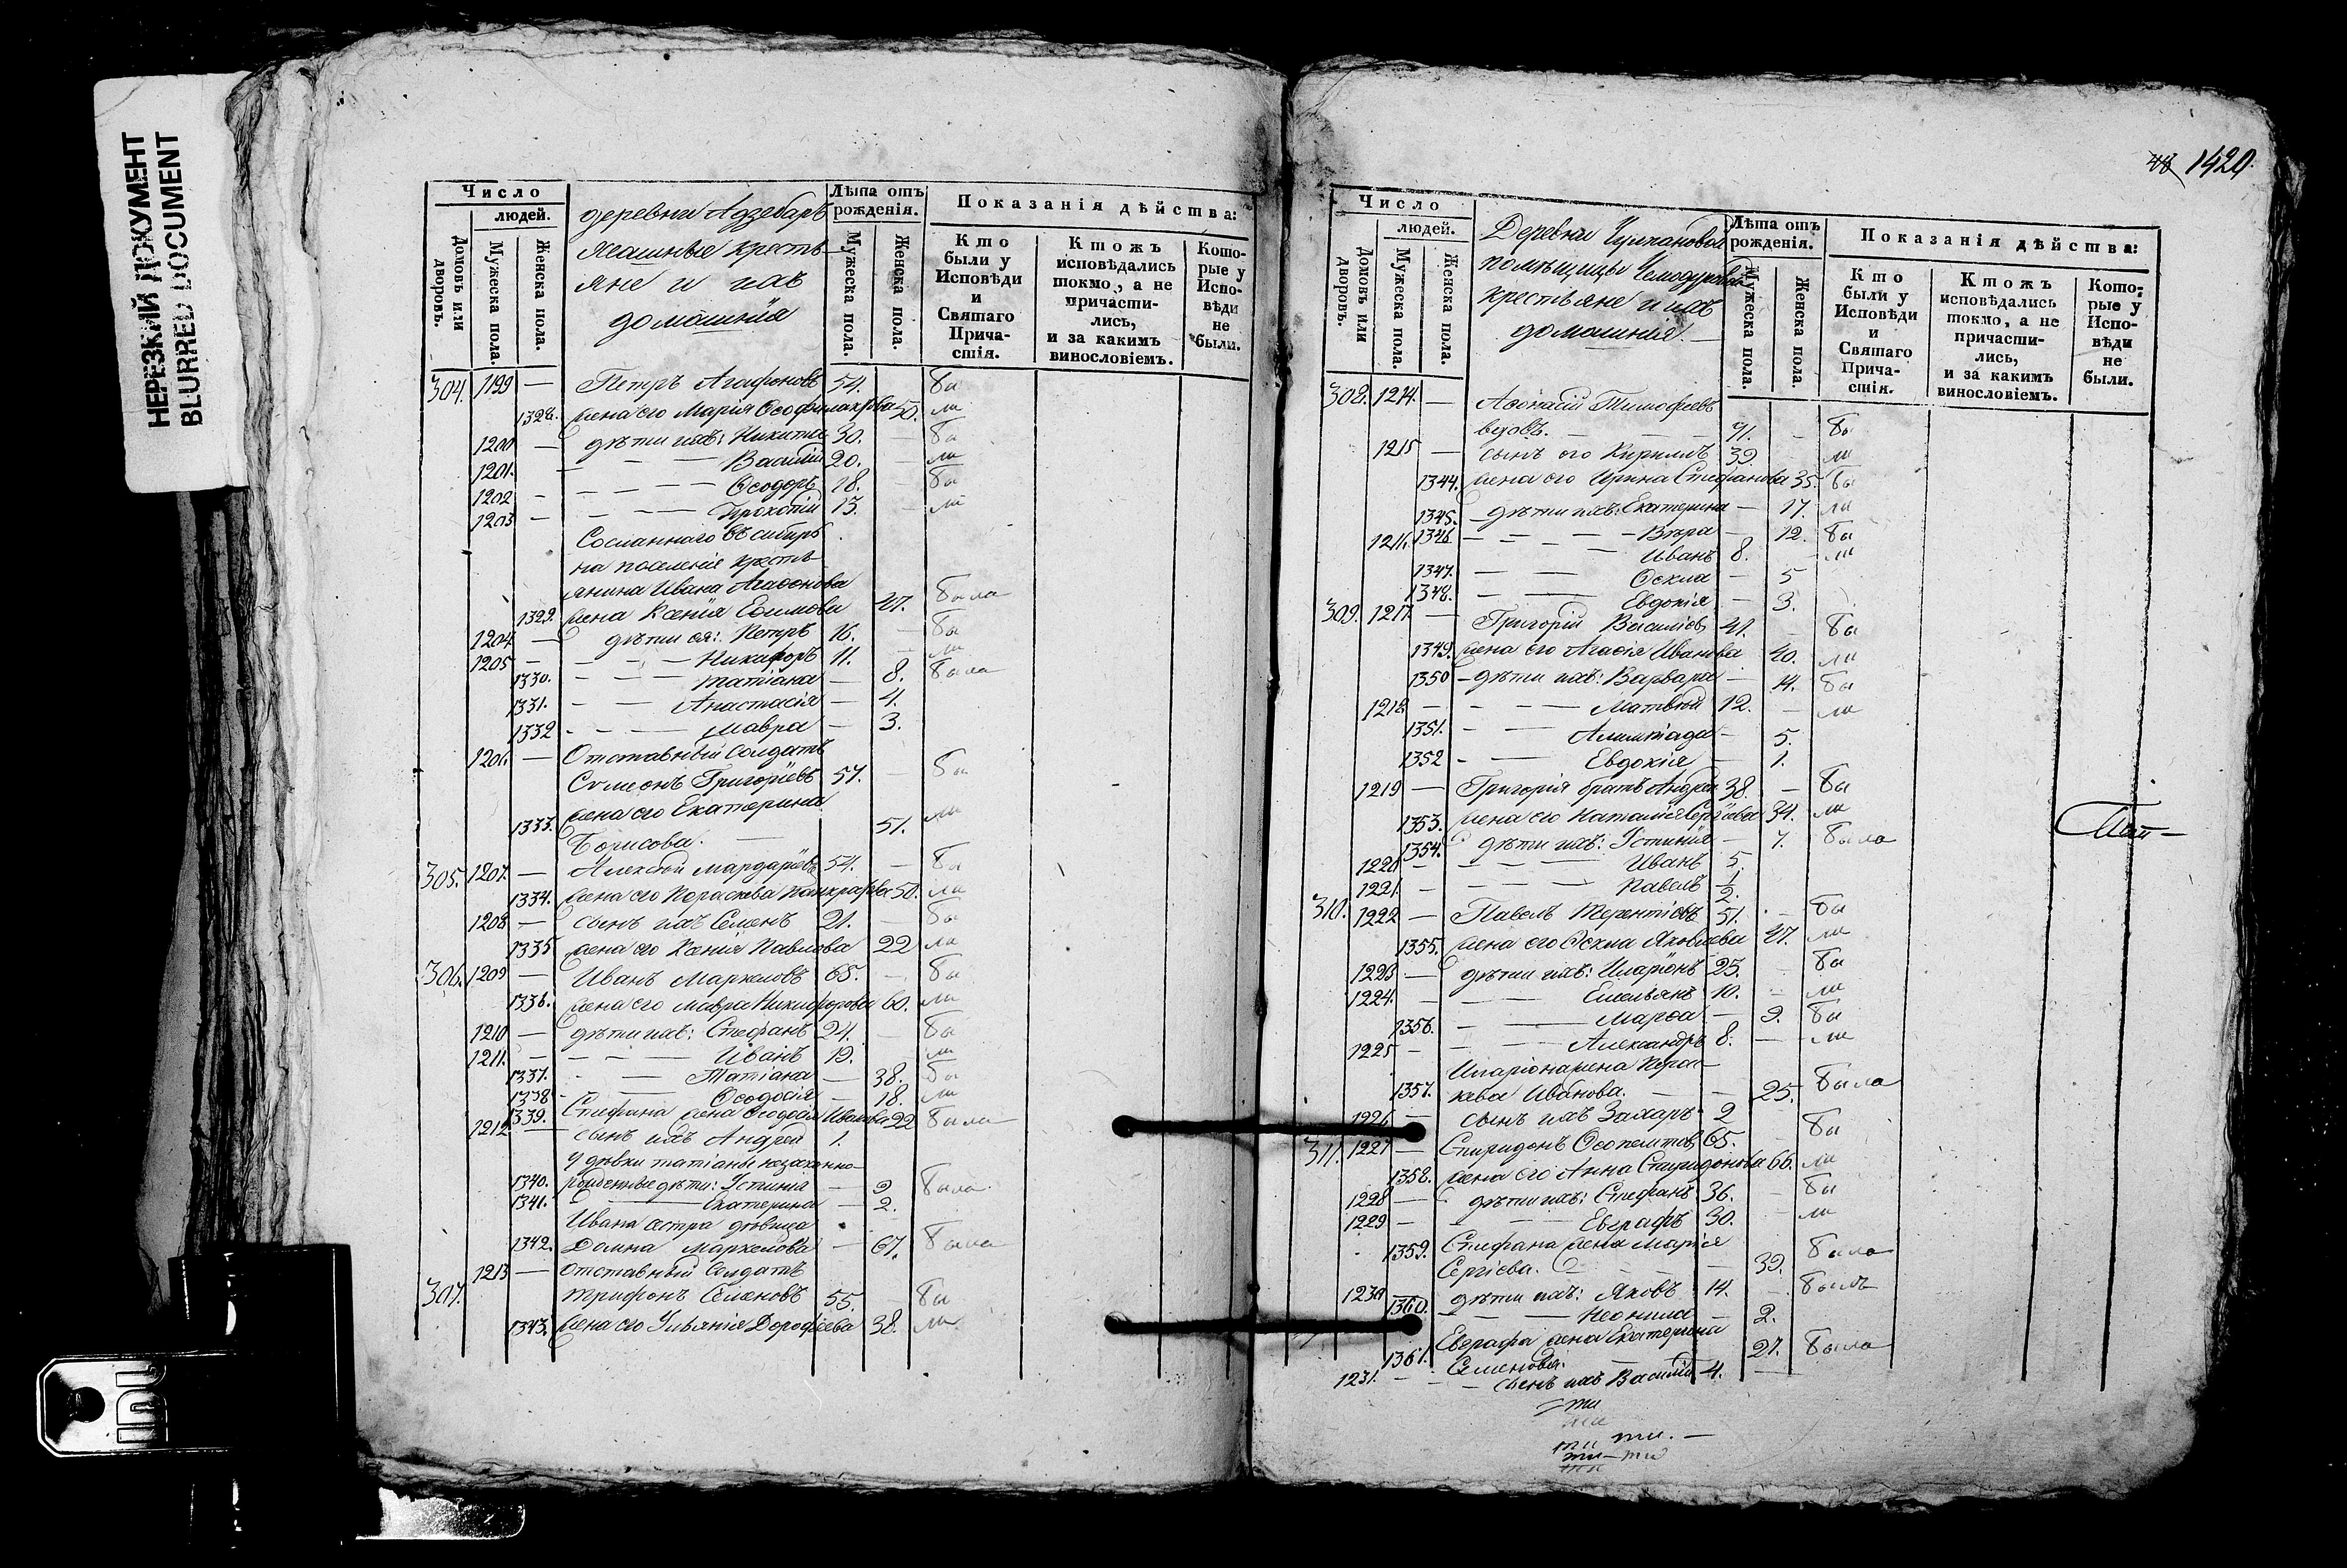 НЕРЕЗКИЙ ДОКУМЕНТ
BLURRED DOCUMENT
Число
людей.
Домовъ или дворовъ.
Мужеска пола.
Женска пола.
деревни
крестьяне и ихъ
домашнія
Лѣта отъ рожденія.
Мужеска пола.
Женска пола.
Показанія дѣйства:
Кто были у Исповѣди и Святаго Причастія.
Ктожъ исповѣдались токмо, а не причастились, и за какимъ винословіемъ.
Которые у Исповѣди не были.
304. 1199 — Петръ Агафоновъ 54. бы
1328. жена его Марія 50. ли
1200 — дѣти ихъ: Никита 30. — бы
1201. — — Василій 20. — ли
1202 — — — Ѳеодоръ 18. — бы
1203 — — — Прокопій 13. — ли
Сосланнаго въ сибирь
на поселеніе кресть-
янина Ивана Агафонова
1329. жена Ксенія Ефимова 47. была
1204 — дѣти ея: Петръ 16. — бы
1205 — — Никифоръ 11. — ли
1330. — — Татіана — 8. была
1331. — — Анастасія — 4.
1332 — — — Мавра — 3.
1206. — Отставный Солдатъ
Сѵмеонъ Григоріевъ 57. — бы
1333. жена его Екатерина
Борисова. 51. ли
305. 1207. — Алексѣй Мардаріевъ 54. — бы
1334. жена его Параскева 50. ли
1208 — сынъ ихъ Семенъ 21. — бы
1335 жена его Ксенія Павлова 22 ли
306. 1209 — Иванъ Маркеловъ 65. — бы
1336. жена его Мавра Никифорова 60. ли
1210 — дѣти ихъ: Стефанъ 24. — бы
1211. — — — Иванъ 19. ли
1337. — — Татіана — 38. бы
1338 — — Ѳеодосія — 18. ли
1339. Стефана жена Ѳеодосія Иванова 22 была
1212. — сынъ ихъ Андрей 1.
У дѣвки Татіаны незаконно-
1340. рожденные дѣти: Устинія — 9 была.
1341. — Екатерина — 2.
Ивана сестра дѣвица
1342. Домна Маркелова — 67. была
1213 — Отставный Солдатъ
307. Трифонъ Семеновъ 55. — бы
1343. жена его Ульянія Дорофеева 38. ли
1420.
Число
людей.
Домовъ или дворовъ.
Мужеска пола.
Женска пола.
Деревни
помѣщицы
крестьяне и ихъ
домашнія. —
Лѣта отъ рожденія.
Мужеска пола.
Женска пола.
Показанія дѣйства:
Кто были у Исповѣди и Святаго Причастія.
Ктожъ исповѣдались токмо, а не причастились, и за какимъ винословіемъ.
Которые у Исповѣди не были.
308. 1214. — Аѳонасій Тимофеевъ
вдовъ. — — — 91. — бы
1215 — сынъ его Кириллъ 39. — ли
1344. жена его Ирина Стефанова 35. бы
1345. — дѣти ихъ: Екатерина — 17. ли
1346 — — — Вѣра — 12. бы
1216. — Иванъ 8. — ли
1347. — — Ѳекла — 5
1348. — — Евдокія — 3.
309. 1217. — Григорій Василіевъ 41. — бы
1349. жена его Агафія Иванова 40. ли
1350 — дѣти ихъ: Варвара — 14. бы
1218 — — — Матвѣй 12. — ли
1351. — — 5.
1352 — — Евдокія — 1.
1219 — Григорія братъ Андрей 38. — бы
1353. жена его Наталія Сергіева 34. ли
1354. дѣти ихъ: Устинія — 7. была
1220 — — — Иванъ 5.
1221. — — — Павелъ 1/2.
310. 1222 — Павелъ Терентіевъ 51. — бы
1355. жена его Ѳекла Яковлева 47. ли
1223 — дѣти ихъ: Иларіонъ 25. — бы
1224. — — Емельянъ 10. — ли
1356. — — Марѳа — 9. бы
1225 — — — Александръ 8. — ли
Иларіона жена Парас-
1357. кева Иванова. — — 25. была
1226 — сынъ ихъ Захаръ 2
311. 1227 — Спиридонъ 65. бы
1358. жена его Анна Спиридонова 66. ли
1228 — дѣти ихъ: Стефанъ 36. — бы
1229 — — — Евграфъ 30. — ли
1359. Стефана жена Марія
Сергіева. — — — 39. была
1230 — дѣти ихъ: Яковъ 14. — былъ
1360. — — Неонила — 2.
1361. Евграфа жена Екатерина
Семенова. — 21. была
1231. — — сынъ ихъ Василій 4. —
ти
ти. —
ти — ти